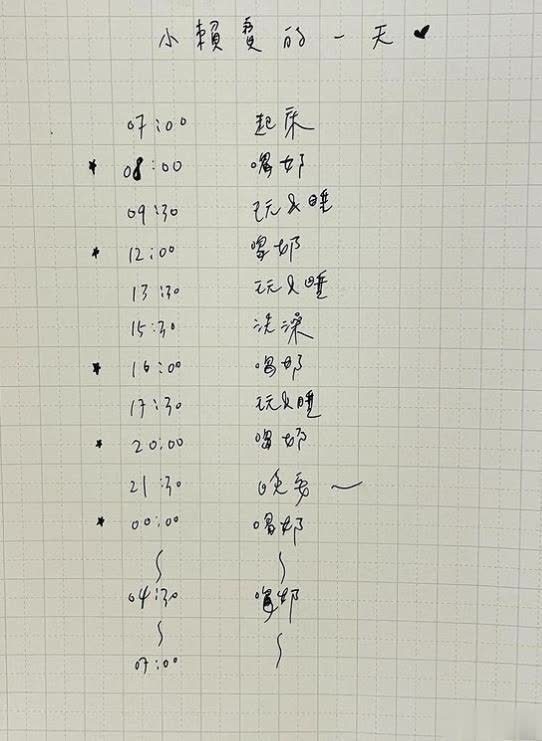 小賴寶的一天♥
07:00 起床
* 08:00 喝奶
09:30 玩&睡
* 12:00 喝奶
13:30 玩&睡
15:30 洗澡
* 16:00 喝奶
17:30 玩&睡
* 20:00 喝奶
21:30 晚安~
* 00:00 喝奶
~ ~
04:30 喝奶
~ ~
07:00